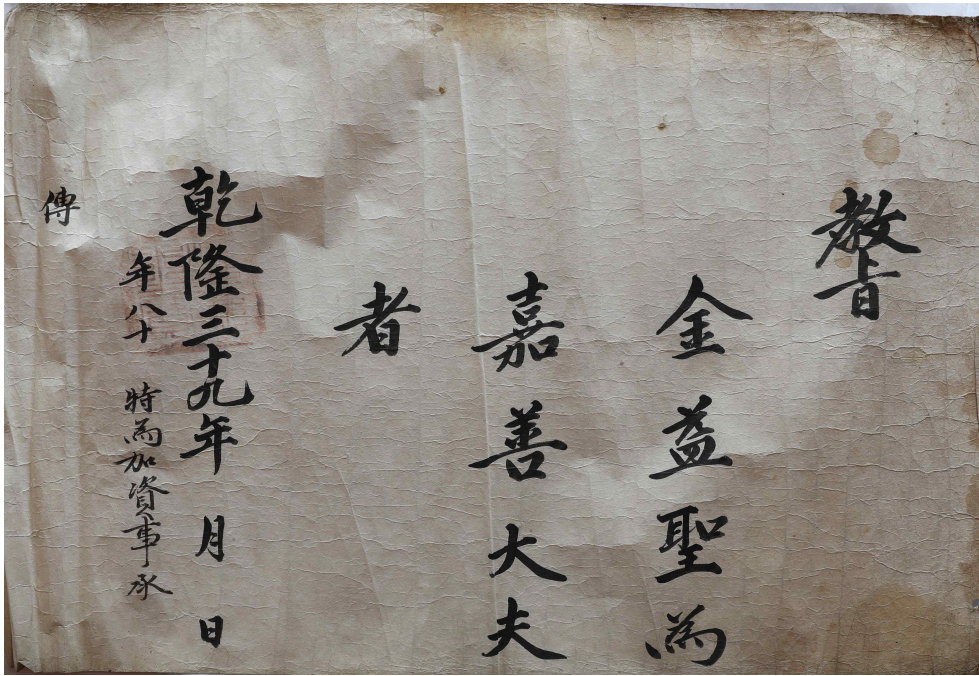 教旨
金益聖爲
嘉善大夫
者
乾隆三十九年 月 日
年八十 特爲加資事承
傳